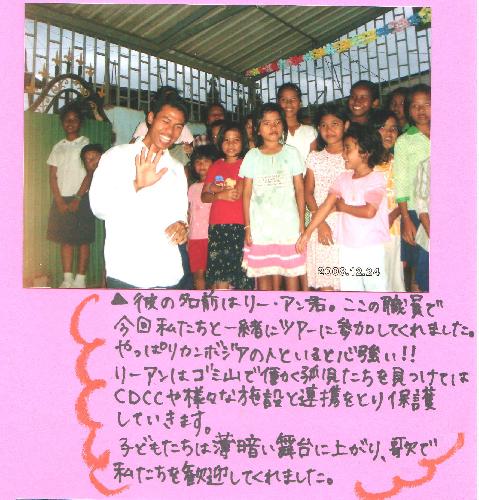 2006.12.24
▲彼の名前はリー・アン君。ここの職員で
今回私たちと一緒にツアーに参加してくれました。
やっぱりカンボジアの人といると心強い!!
リーアンはゴミ山で働く孤児たちを見つけては
CDCCや様々な施設と連携をとり保護
していきます。
子どもたちは薄暗い舞台に上がり、歌で
私たちを歓迎してくれました。